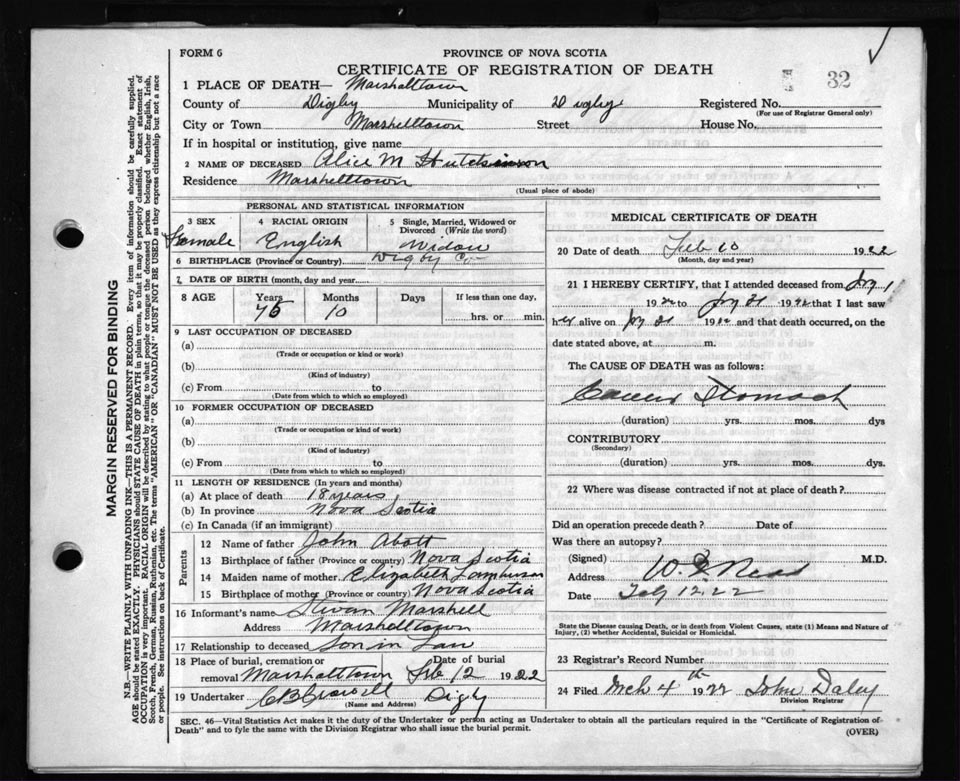 FORM 6
PROVINCE OF NOVA SCOTIA
CERTIFICATE OF REGISTRATION OF DEATH
32
1 PLACE OF DEATH— Marshalltown
County of Digby Municipality of Digby Registered No.
(For use of Registrar General only)
City or Town Marshalltown Street House No.
If in hospital or institution, give name
2 NAME OF DECEASED Alice M Hutchinson
Residence Marshalltown
(Usual place of abode)
PERSONAL AND STATISTICAL INFORMATION
3 SEX 4 RACIAL ORIGIN 5 Single, Married, Widowed or Divorced (Write the word)
Female English Widow
6 BIRTHPLACE (Province or Country) Digby Co
7 DATE OF BIRTH (month, day and year)
8 AGE Years Months Days If less than one day,
10 hrs. or min.
9 LAST OCCUPATION OF DECEASED
(a)
(Trade or occupation or kind or work)
(b)
(Kind of industry)
(c) From to
(Date from which to which so employed)
10 FORMER OCCUPATION OF DECEASED
(a)
(Trade or occupation or kind of work)
(b)
(Kind of industry)
(c) From to
(Date from which to which so employed)
11 LENGTH OF RESIDENCE (In years and months)
(a) At place of death 18 years
(b) In province Nova Scotia
(c) In Canada (if an immigrant)
Parents
12 Name of father John Abott
13 Birthplace of father (Province or country) Nova Scotia
14 Maiden name of mother Elizabeth
15 Birthplace of mother (Province or country) Nova Scotia
16 Informant's name Marshall
Address Marshalltown
17 Relationship to deceased Son in Law
18 Place of burial, cremation or removal Marshalltown Date of burial Feb 12 1922
19 Undertaker Digby
(Name and Address)
MEDICAL CERTIFICATE OF DEATH
20 Date of death Feb 10 1922
(Month, day and year)
21 I HEREBY CERTIFY, that I attended deceased from Jny 1
1922 to Jny 31 1922 that I last saw
her alive on Jny 31 1922 and that death occurred, on the
date stated above, at m.
The CAUSE OF DEATH was as follows:
Cancer Stomach
(duration) yrs. mos. dys
CONTRIBUTORY
(Secondary)
(duration) yrs. mos. dys.
22 Where was disease contracted if not at place of death?
Did an operation precede death? Date of
Was there an autopsy?
(Signed) M.D.
Address
Date Feby 12, 22
State the Disease causing Death, or in death from Violent Causes, state (1) Means and Nature of
Injury, (2) whether Accidental, Suicidal or Homicidal.
23 Registrar's Record Number
24 Filed Mch 4th 1922 John Daley
Division Registrar
SEC. 46—Vital Statistics Act makes it the duty of the Undertaker or person acting as Undertaker to obtain all the particulars required in the "Certificate of Registration of
Death" and to fyle the same with the Division Registrar who shall issue the burial permit.
(OVER)
MARGIN RESERVED FOR BINDING
N.B.—WRITE PLAINLY WITH UNFADING INK—THIS IS A PERMANENT RECORD. Every item of information should be carefully supplied.
AGE should be stated EXACTLY. PHYSICIANS should STATE CAUSE OF DEATH in plain terms, so that it may be properly classified. Exact statement of
OCCUPATION is very important. RACIAL ORIGIN will be described by stating to what people or tongue the deceased person belonged whether English, Irish,
Scotch, French, German, Russian, Ruthenian, etc. The terms "AMERICAN" OR "CANADIAN" MUST NOT BE USED as they express citizenship but not a race
or people. See instructions on back of Certificate.